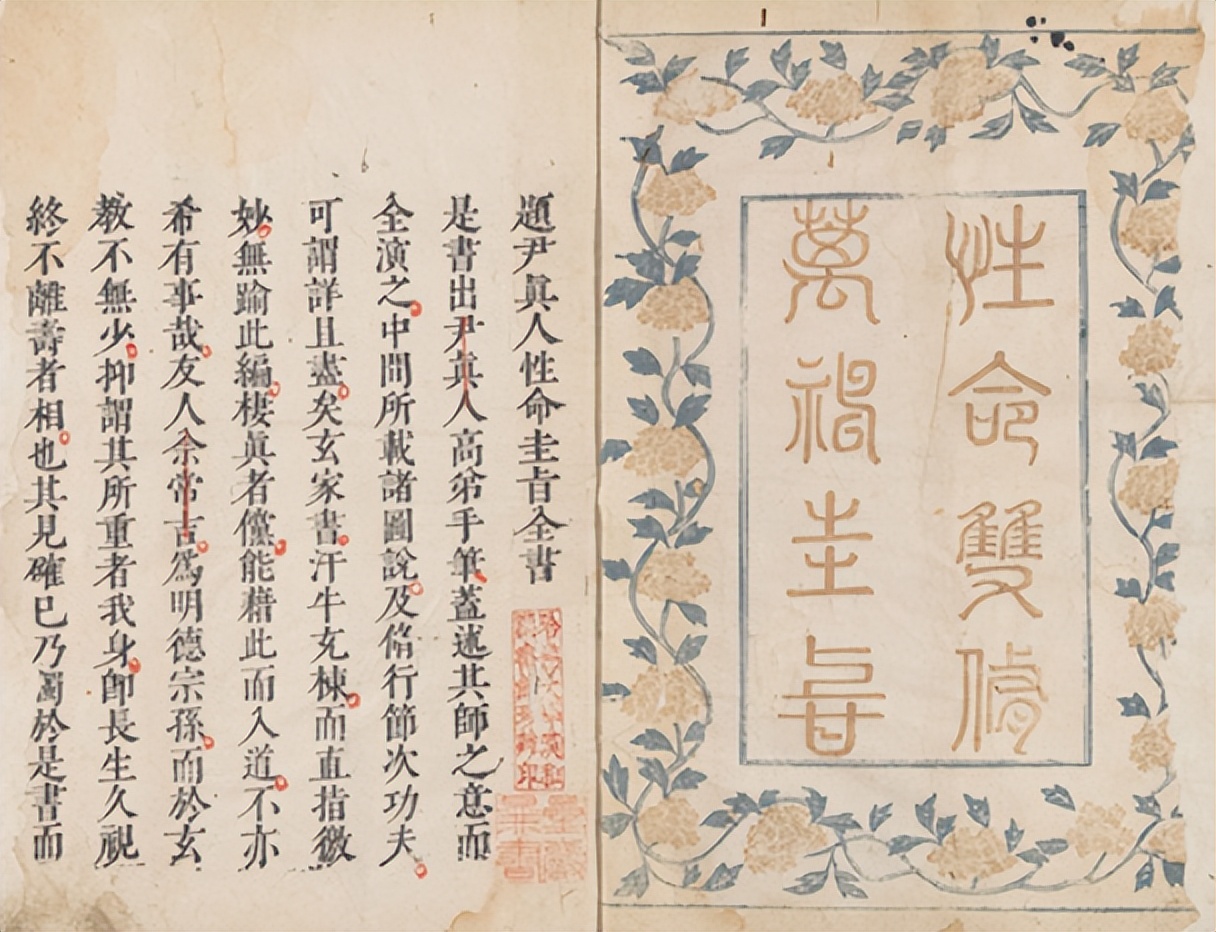 性命雙脩
萬神圭旨
題尹眞人性命圭旨全書
是書出尹眞人高弟手筆蓋述其師之意而
全演之中間所載諸圖說及脩行節次功夫
可謂詳且盡矣玄家書汗牛充棟而直指微
妙無踰此編棲眞者儻能藉此而入道不亦
希有事哉友人余常吉爲明德宗孫而於玄
教不無少抑謂其所重者我身卽長生久視
終不離壽者相也其見確已乃獨於是書而